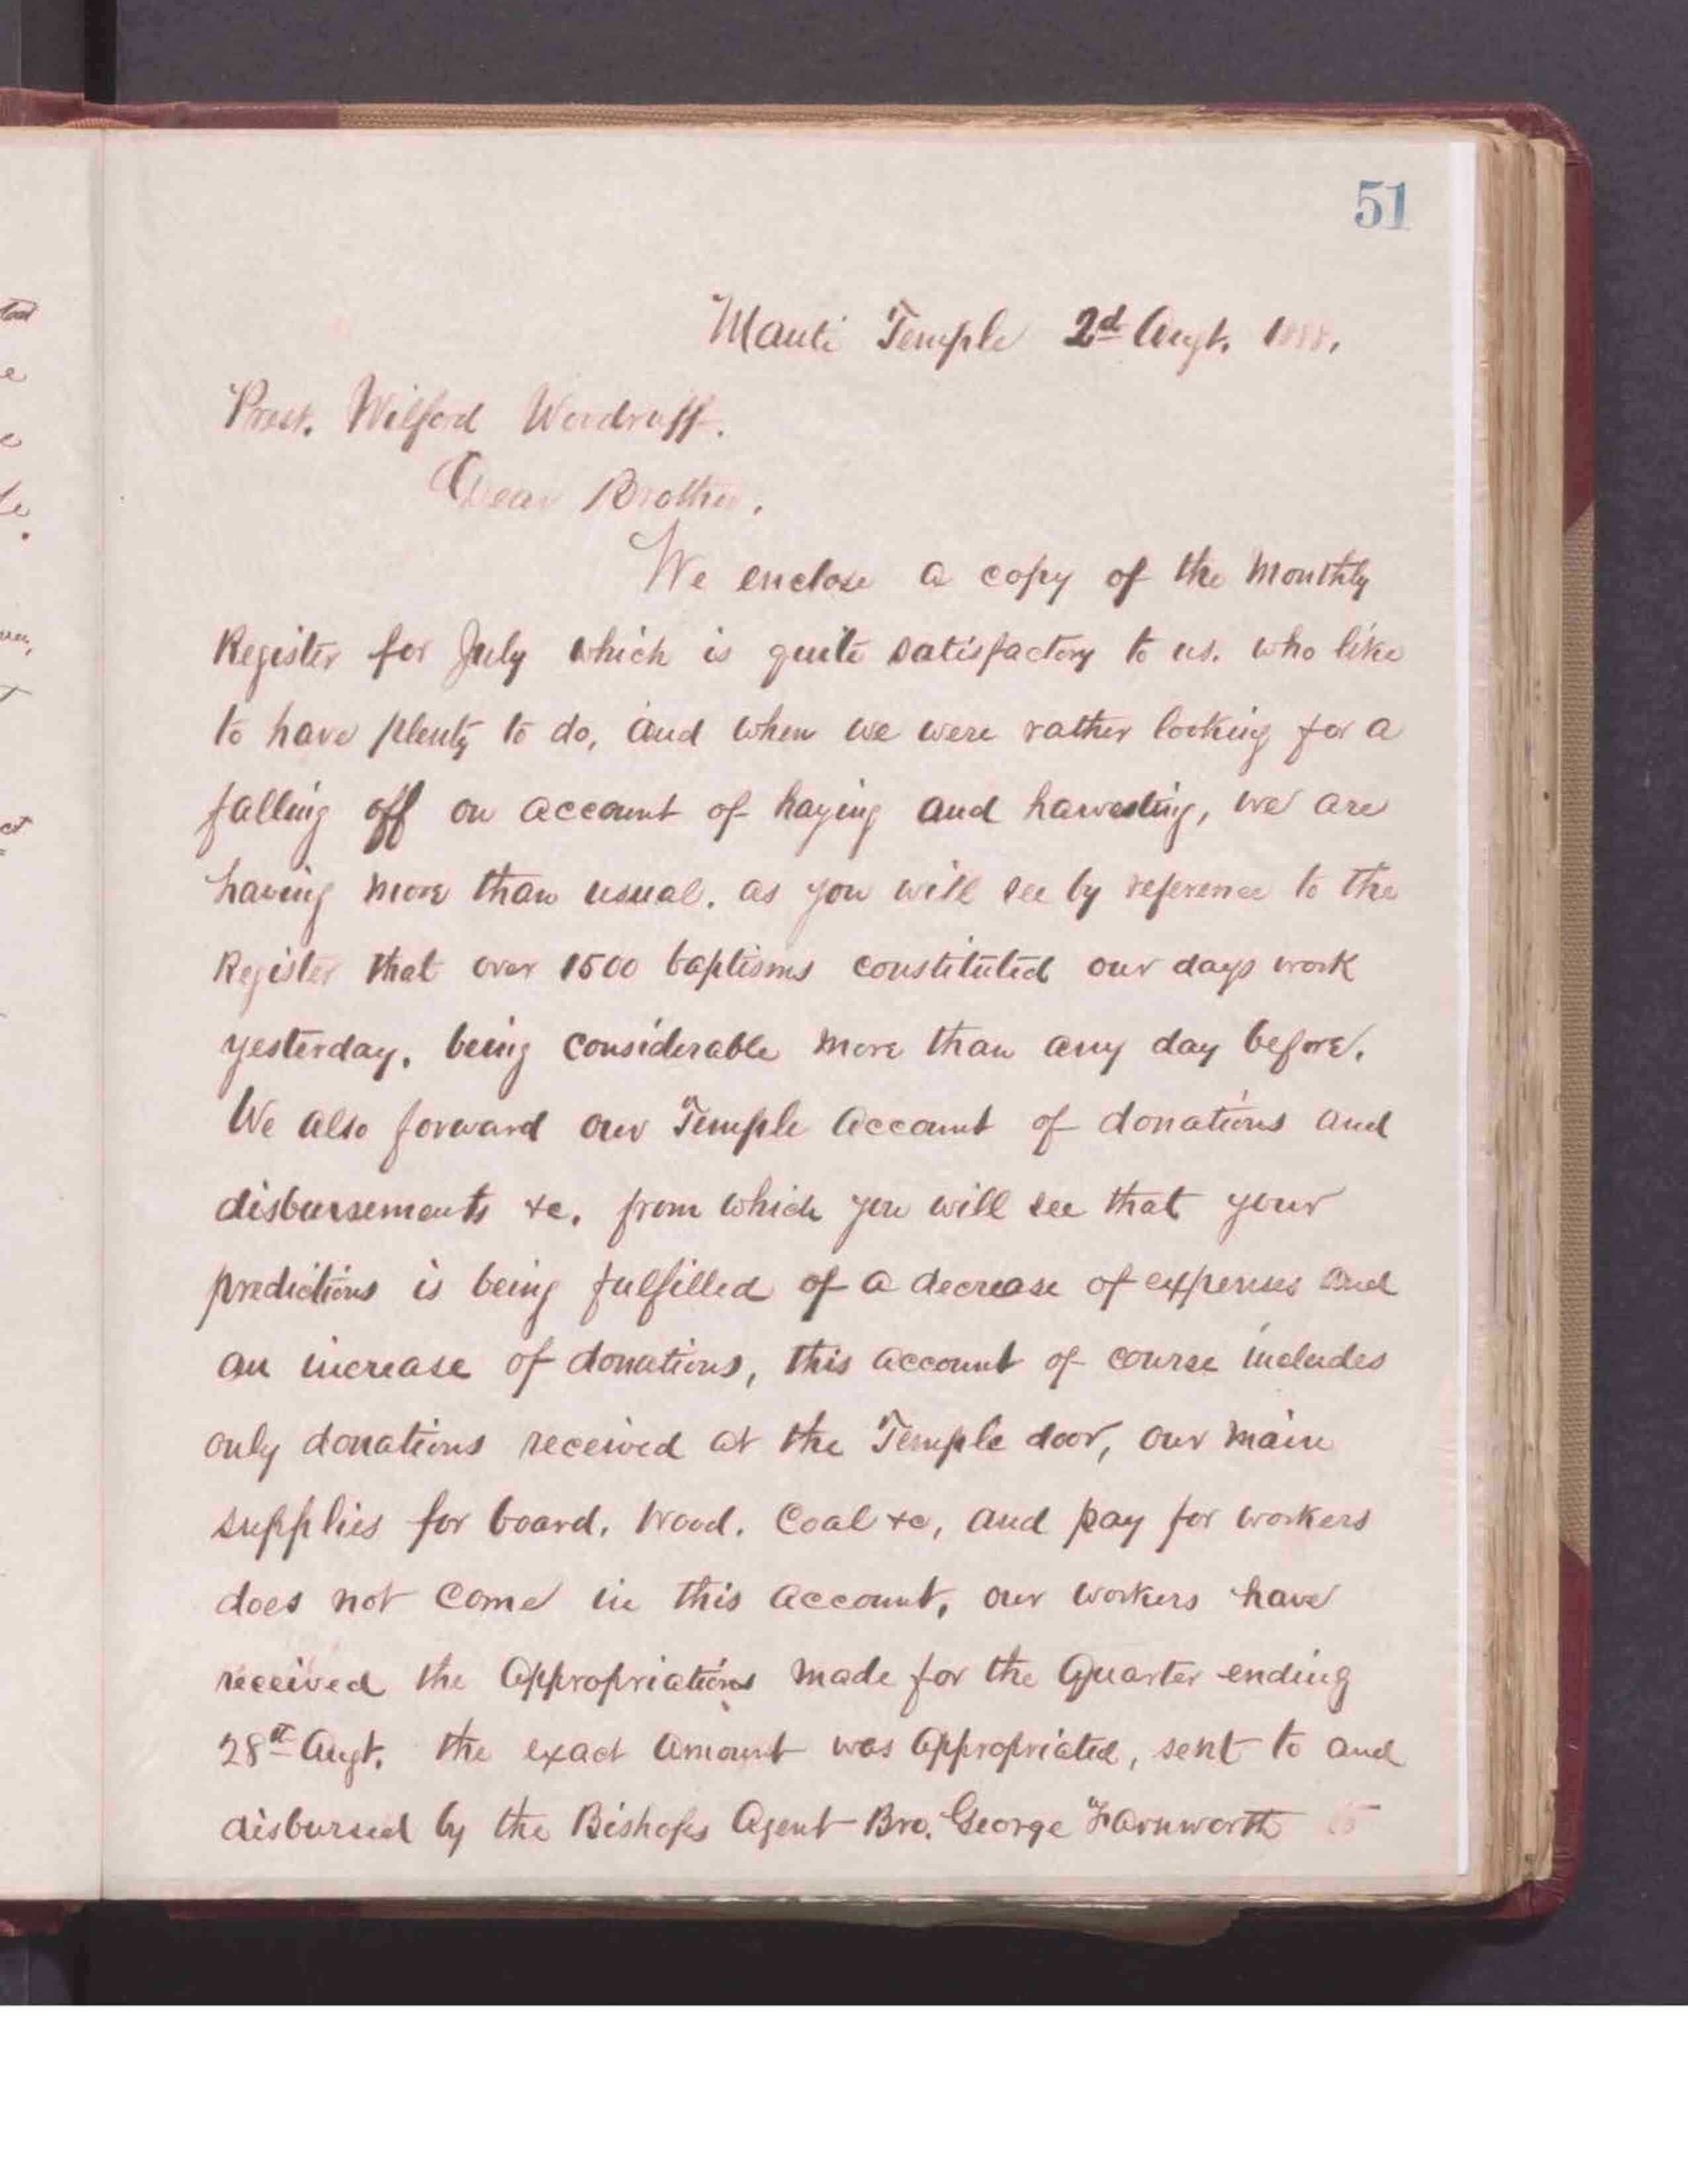 51
Manti Temple 2d Augt. 1888.
Prest. Wilford Woodruff.
Dear Brother,
We enclose a copy of the Monthly
Register for July which is quite satisfactory to us. who like
to have plenty to do, and when we were rather looking for a
falling off on account of haying and harvesting, we are
having more than usual. as you will see by reference to the
Register that over 1500 baptisms constituted our days work
yesterday, being considerable more than any day before.
We also forward our Temple Account of donations and
disbursements &c. from which you will see that your
predictions is being fulfilled of a decrease of expenses and
an increase of donations, this account of course includes
only donations received at the Temple door, our main
supplies for board, Wood, Coal &c, and pay for workers
does not come in this account, our workers have
received the appropriations made for the Quarter ending
28th Augt. the exact amount was appropriated, sent to and
disbursed by the Bishops Agent Bro. George Farnworth to